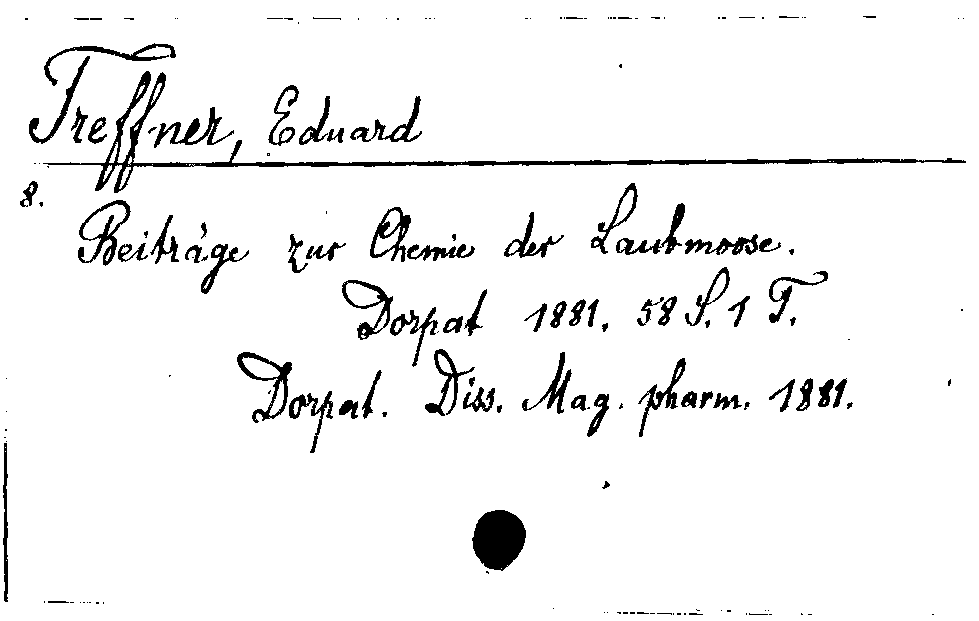 Treffner, Eduard
8.
Beiträge zur Chemie der Laubmoose.
Dorpat 1881. 58 S. 1 T.
Dorpat. Diss. Mag. pharm. 1881.